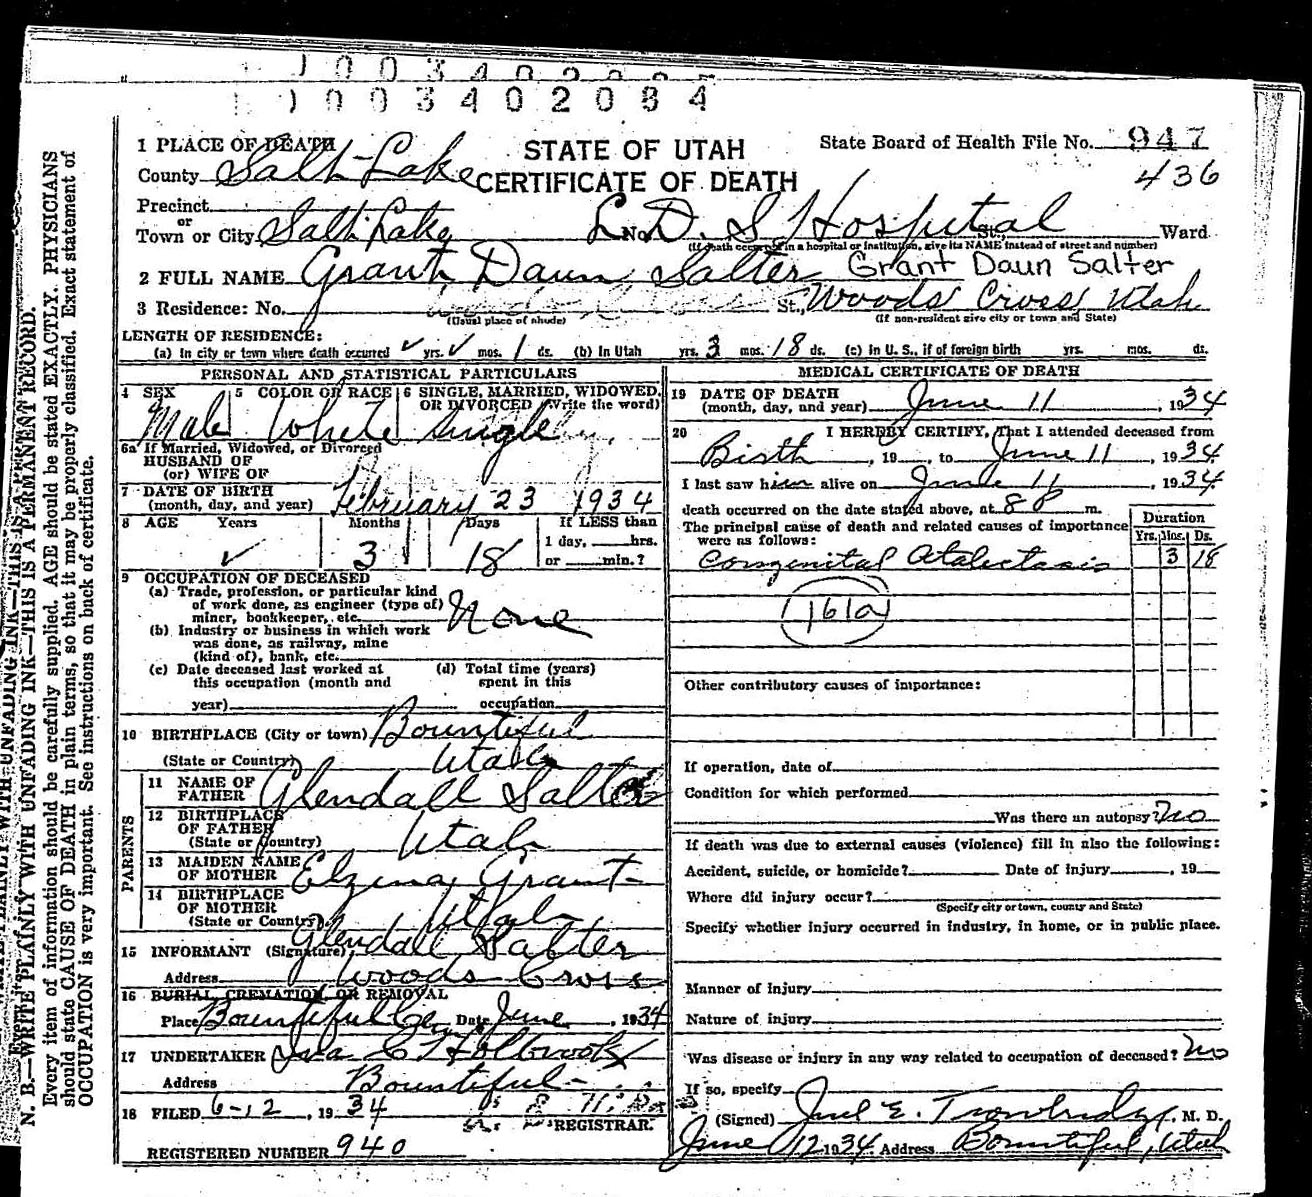 1003402084
1 PLACE OF DEATH
STATE OF UTAH
State Board of Health File No. 947
County Salt Lake
CERTIFICATE OF DEATH
436
Precinct
or
Town or City Salt Lake No. L. D. S Hospital St., Ward
(If death occurred in a hospital or institution, give its NAME instead of street and number)
2 FULL NAME Grant Daun Salter Grant Daun Salter
3 Residence: No. St., Woods Cross, Utah
(Usual place of abode) (If non-resident give city or town and State)
LENGTH OF RESIDENCE:
(a) In city or town where death occurred ✓ yrs. ✓ mos. 1 ds. (b) In Utah yrs. 3 mos. 18 ds. (c) In U. S., if of foreign birth yrs. mos. ds.
PERSONAL AND STATISTICAL PARTICULARS
4 SEX 5 COLOR OR RACE 6 SINGLE, MARRIED, WIDOWED, OR DIVORCED (Write the word)
Male White Single
6a If Married, Widowed, or Divorced
HUSBAND OF
(or) WIFE OF
7 DATE OF BIRTH
(month, day, and year) February 23 1934
8 AGE Years Months Days If LESS than
1 day, hrs.
✓ 3 18 or min.?
9 OCCUPATION OF DECEASED
(a) Trade, profession, or particular kind
of work done, as engineer (type of)
miner, bookkeeper, etc. None
(b) Industry or business in which work
was done, as railway, mine
(kind of), bank, etc.
(c) Date deceased last worked at (d) Total time (years)
this occupation (month and spent in this
year) occupation
10 BIRTHPLACE (City or town) Bountiful
(State or Country) Utah
PARENTS
11 NAME OF
FATHER Glendall Salter
12 BIRTHPLACE
OF FATHER
(State or Country) Utah
13 MAIDEN NAME
OF MOTHER Elzina Grant
14 BIRTHPLACE
OF MOTHER
(State or Country) Utah
15 INFORMANT (Signature) Glendall Salter
Address Woods Cross
16 BURIAL, CREMATION, OR REMOVAL
Place Bountiful Cem Date June, 1934
17 UNDERTAKER Ira C Holbrook
Address Bountiful
18 FILED 6-12, 1934
REGISTRAR.
REGISTERED NUMBER 940
MEDICAL CERTIFICATE OF DEATH
19 DATE OF DEATH
(month, day, and year) June 11, 1934
20 I HEREBY CERTIFY, That I attended deceased from
Birth, 19 , to June 11, 1934
I last saw him alive on June 11, 1934
death occurred on the date stated above, at 8 P m.
The principal cause of death and related causes of importance
were as follows:
Duration
Yrs. Mos. Ds.
Congenital Atalectasis 3 18
161a
Other contributory causes of importance:
If operation, date of
Condition for which performed
Was there an autopsy? No
If death was due to external causes (violence) fill in also the following:
Accident, suicide, or homicide? Date of injury , 19
Where did injury occur?
(Specify city or town, county and State)
Specify whether injury occurred in industry, in home, or in public place.
Manner of injury
Nature of injury
Was disease or injury in any way related to occupation of deceased? No
If so, specify
(Signed) E. Trowbridge, M. D.
June 12 1934 Address Bountiful, Utah
N. B.—WRITE PLAINLY WITH UNFADING INK—THIS IS A PERMANENT RECORD.
Every item of information should be carefully supplied. AGE should be stated EXACTLY. PHYSICIANS
should state CAUSE OF DEATH in plain terms, so that it may be properly classified. Exact statement of
OCCUPATION is very important. See instructions on back of certificate.